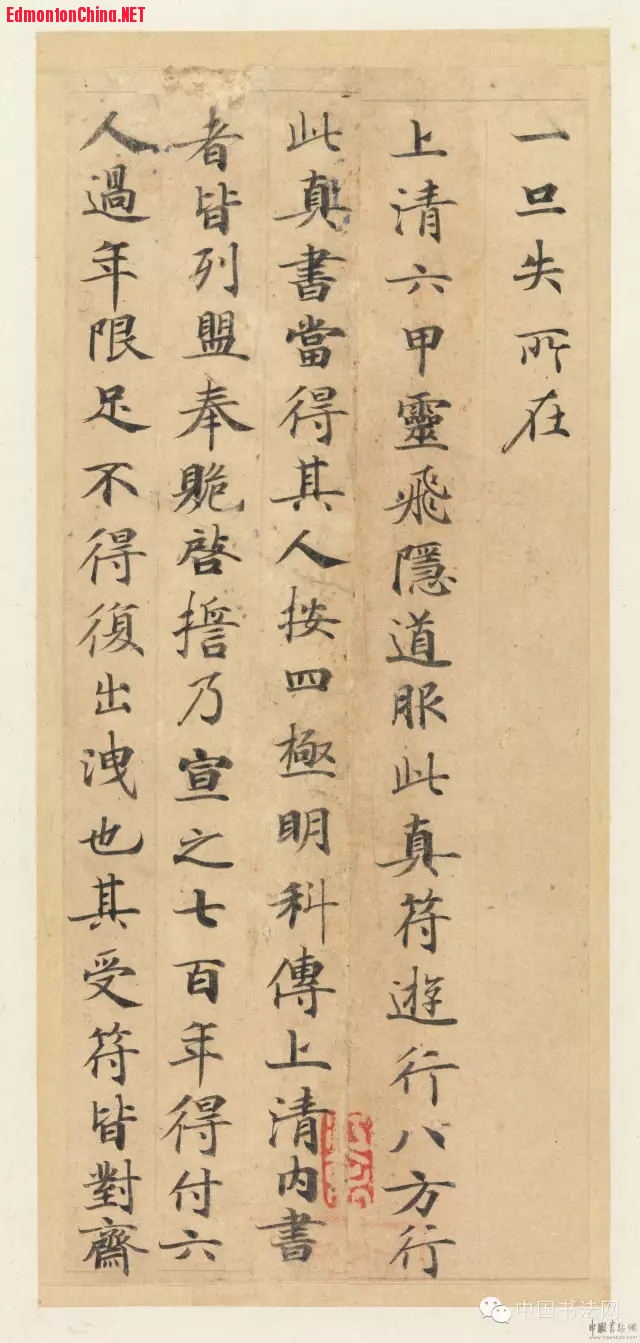 EdmontonChina.NET
一旦失所在
上清六甲靈飛隱道服此真符遊行八方行
此真書當得其人按四極明科傳上清内書
者皆列盟奉贶啓誓乃宣之七百年得付六
人過年限足不得復出洩也其受符皆對齋
中国书法网